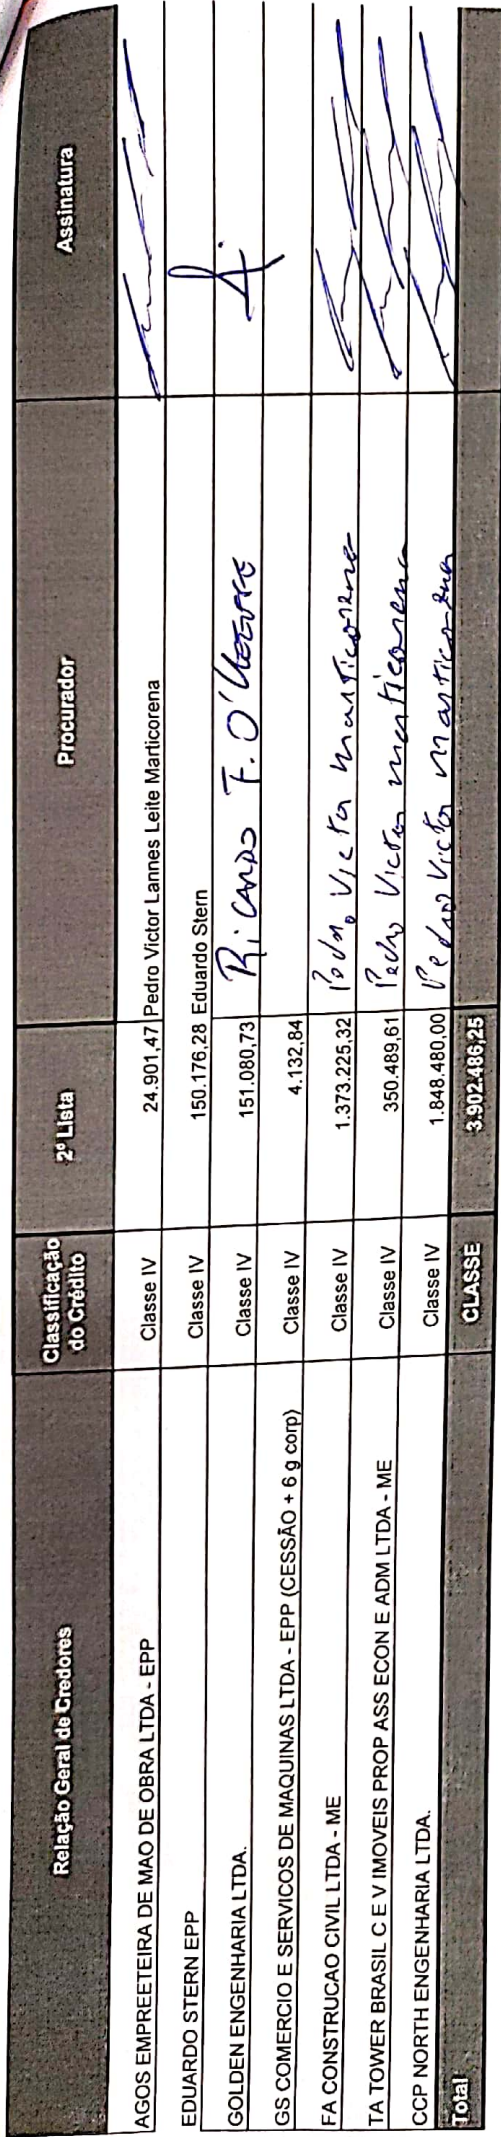 Relação Geral de Credores Classificação do Crédito 2ª Lista Procurador Assinatura
AGOS EMPREETEIRA DE MAO DE OBRA LTDA - EPP Classe IV 24.901,47 Pedro Victor Lannes Leite Marticorena
EDUARDO STERN EPP Classe IV 150.176,28 Eduardo Stern
GOLDEN ENGENHARIA LTDA. Classe IV 151.080,73 Ricardo F. O'
GS COMERCIO E SERVICOS DE MAQUINAS LTDA - EPP (CESSÃO + 6 g corp) Classe IV 4.132,84
FA CONSTRUCAO CIVIL LTDA - ME Classe IV 1.373.225,32 Pedro Victor Marticorena
TA TOWER BRASIL C E V IMOVEIS PROP ASS ECON E ADM LTDA - ME Classe IV 350.489,61 Pedro Victor Marticorena
CCP NORTH ENGENHARIA LTDA. Classe IV 1.848.480,00 Pedro Victor Marticorena
Total CLASSE 3.902.486,25